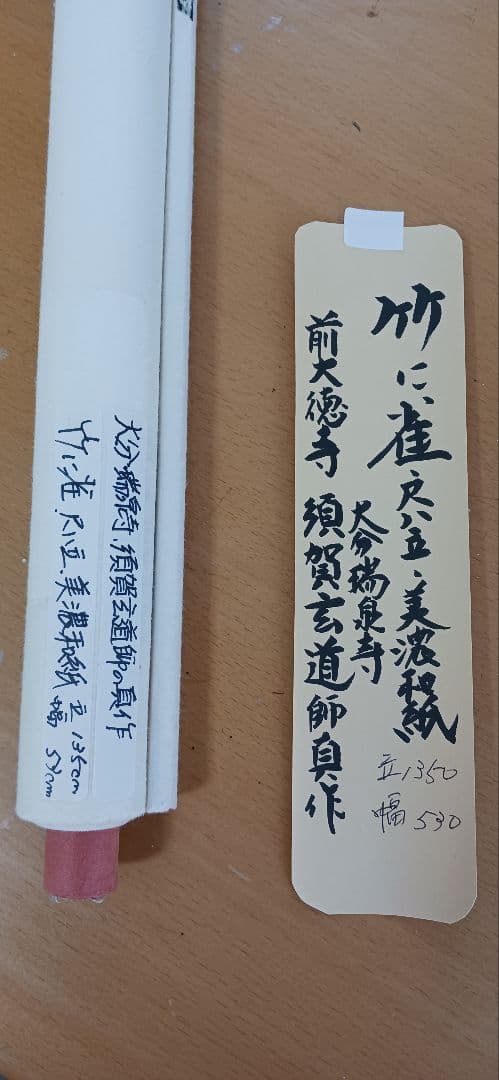 竹に雀、尺八立、美濃和紙、
立1350
幅 530
大分瑞泉寺
前大徳寺 須賀玄道師真作
大分瑞泉寺、須賀玄道師の真作
竹に雀、尺八立、美濃和紙 立 135cm
幅 53cm